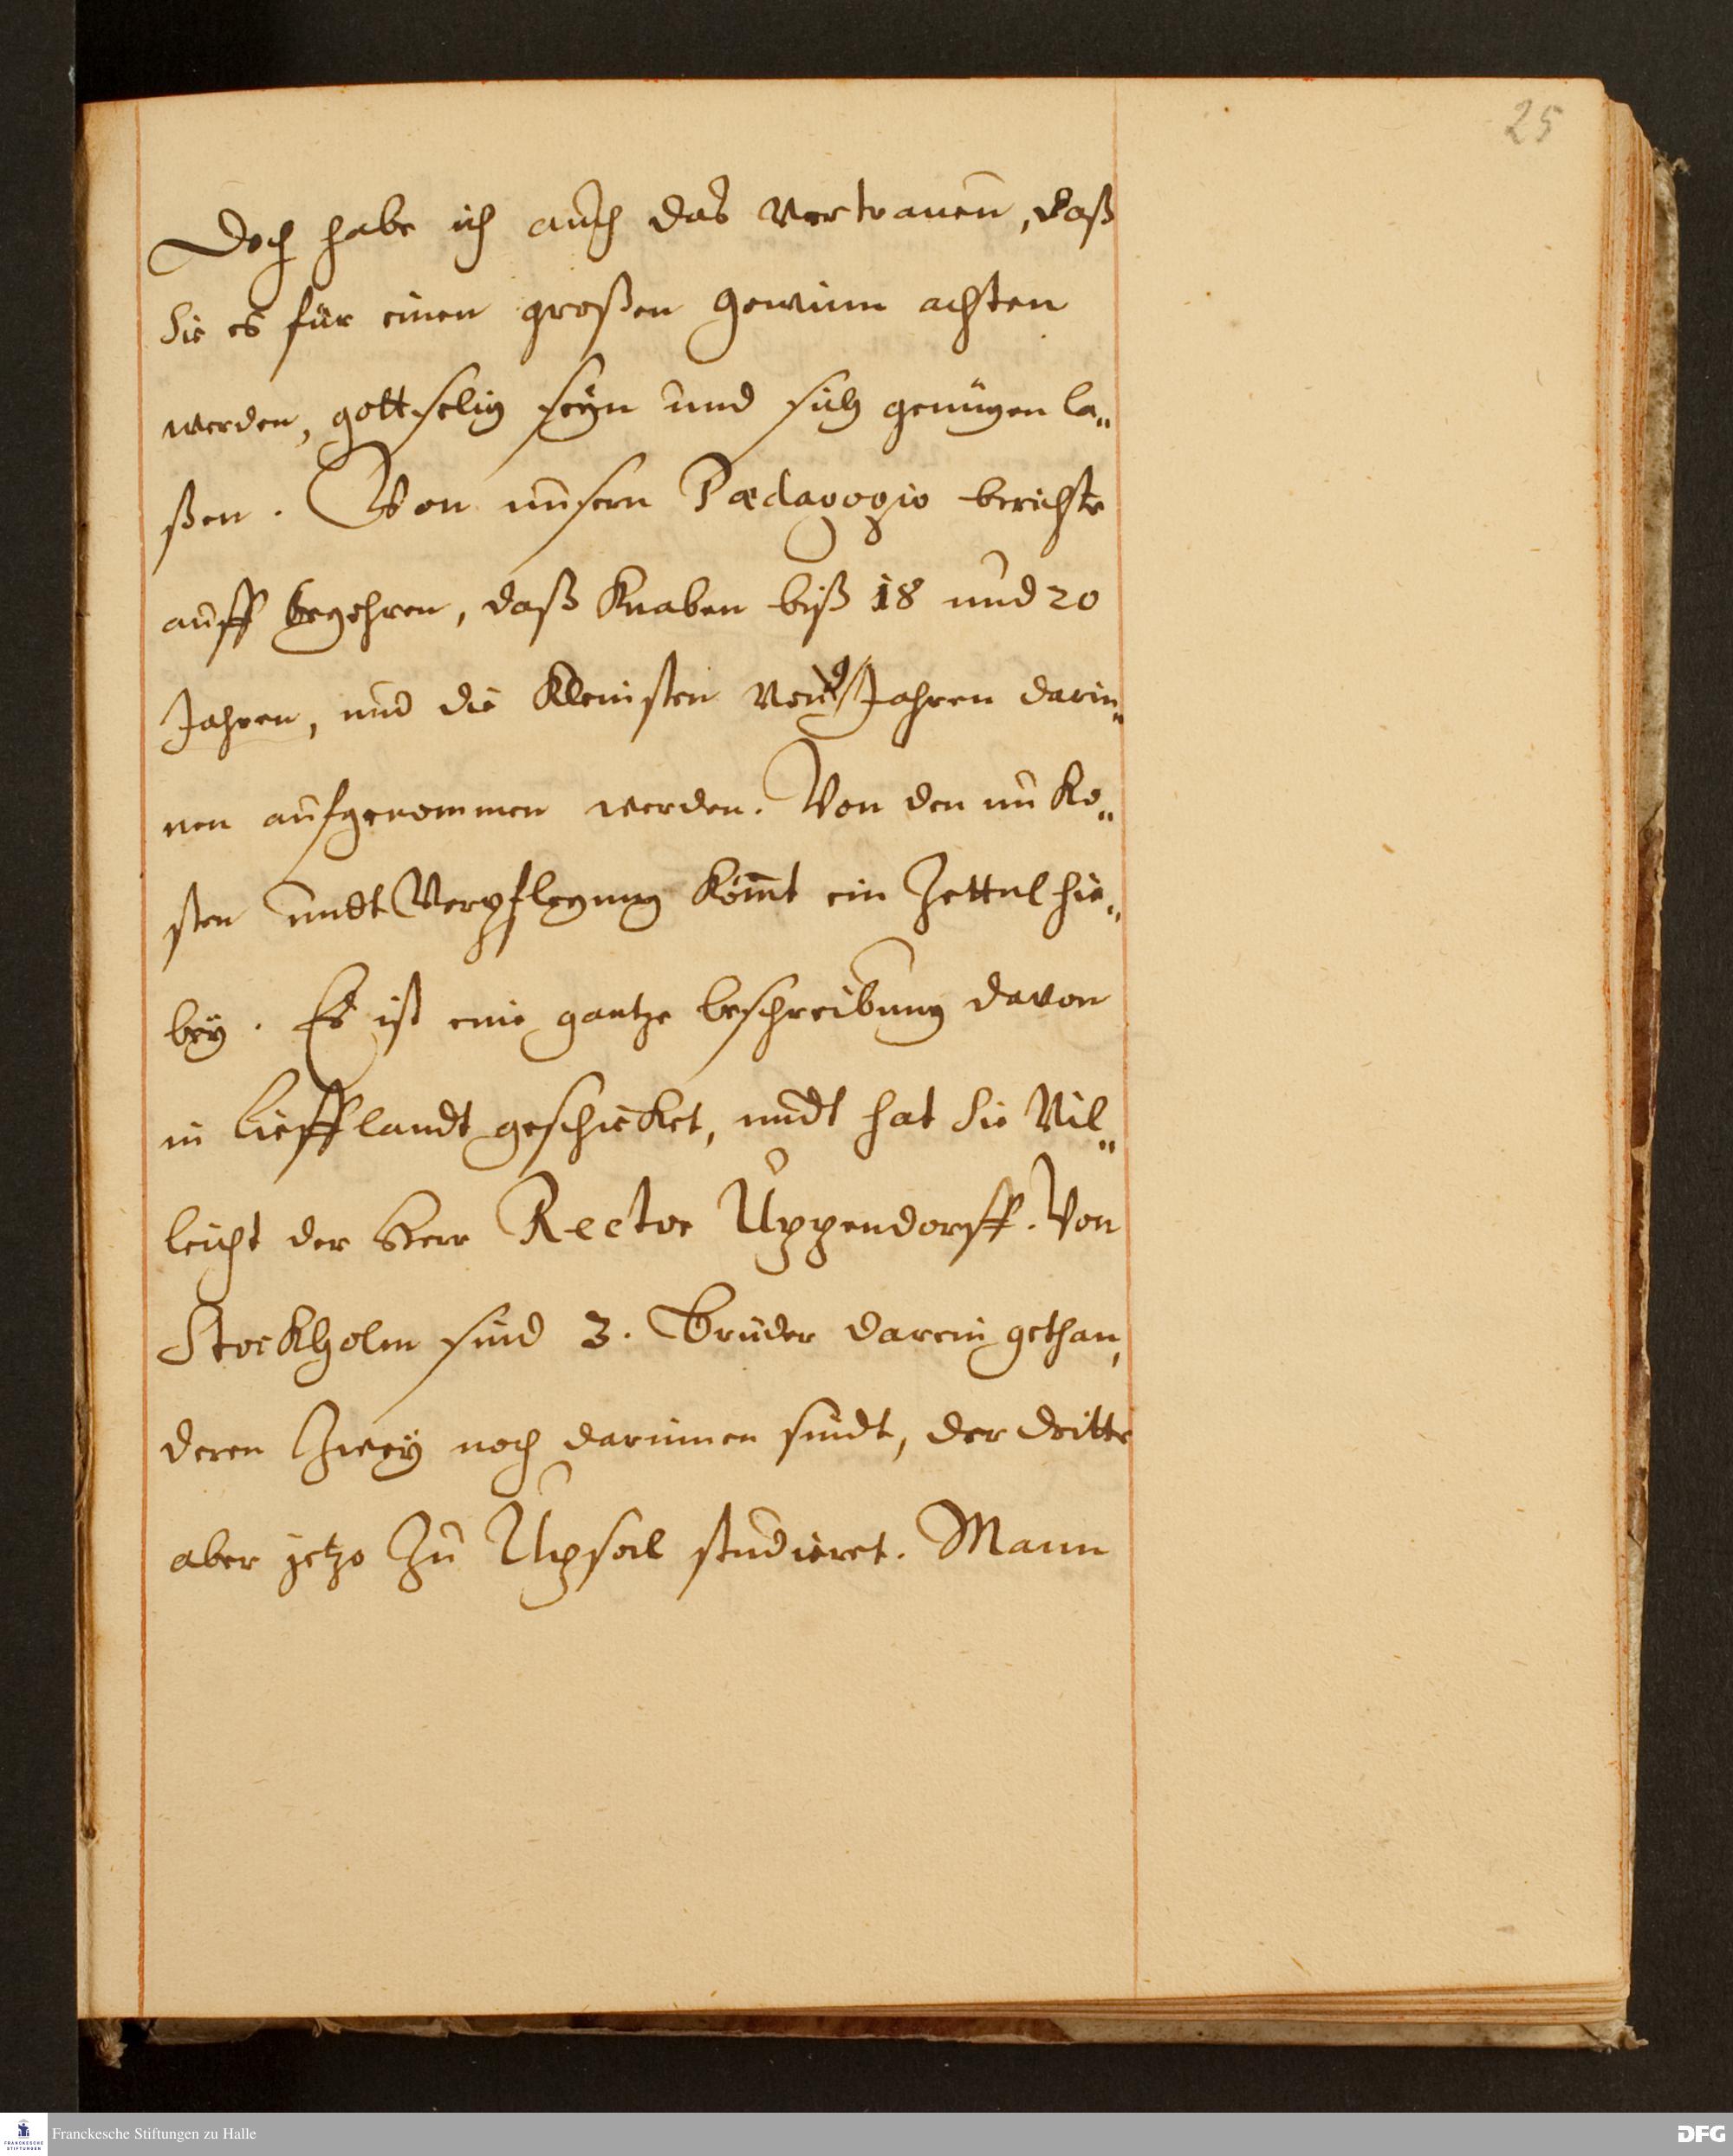 25
Doch habe ich auch das Vertrauen, daß
Sie es für einen großen gewinn achten
werden, gottselig seÿn und sich genügen la„
ßen. Von unsern Pædagogio berichte
auff begehren, daß Knaben biß 18 und 20
Jahren, und die Kleinsten von 9 Jahren darin„
nen aufgenommen werden. Von den unko„
sten undt Verpflegung kom̄t ein Zettul hie„
beÿ. Es ist eine gantze beschreibung davon
in Liefflandt geschicket, undt hat Sie Vil„
leicht der Herr Rector Uppendorff. Von
Stockholm sind 3. Brüder darein gethan,
deren Zweÿ noch darinnen sindt, der dritte
aber jetzo Zu Upsal studieret. Mann
Franckesche Stiftungen zu Halle
FRANCKESCHE
STIFTUNGEN
DFG